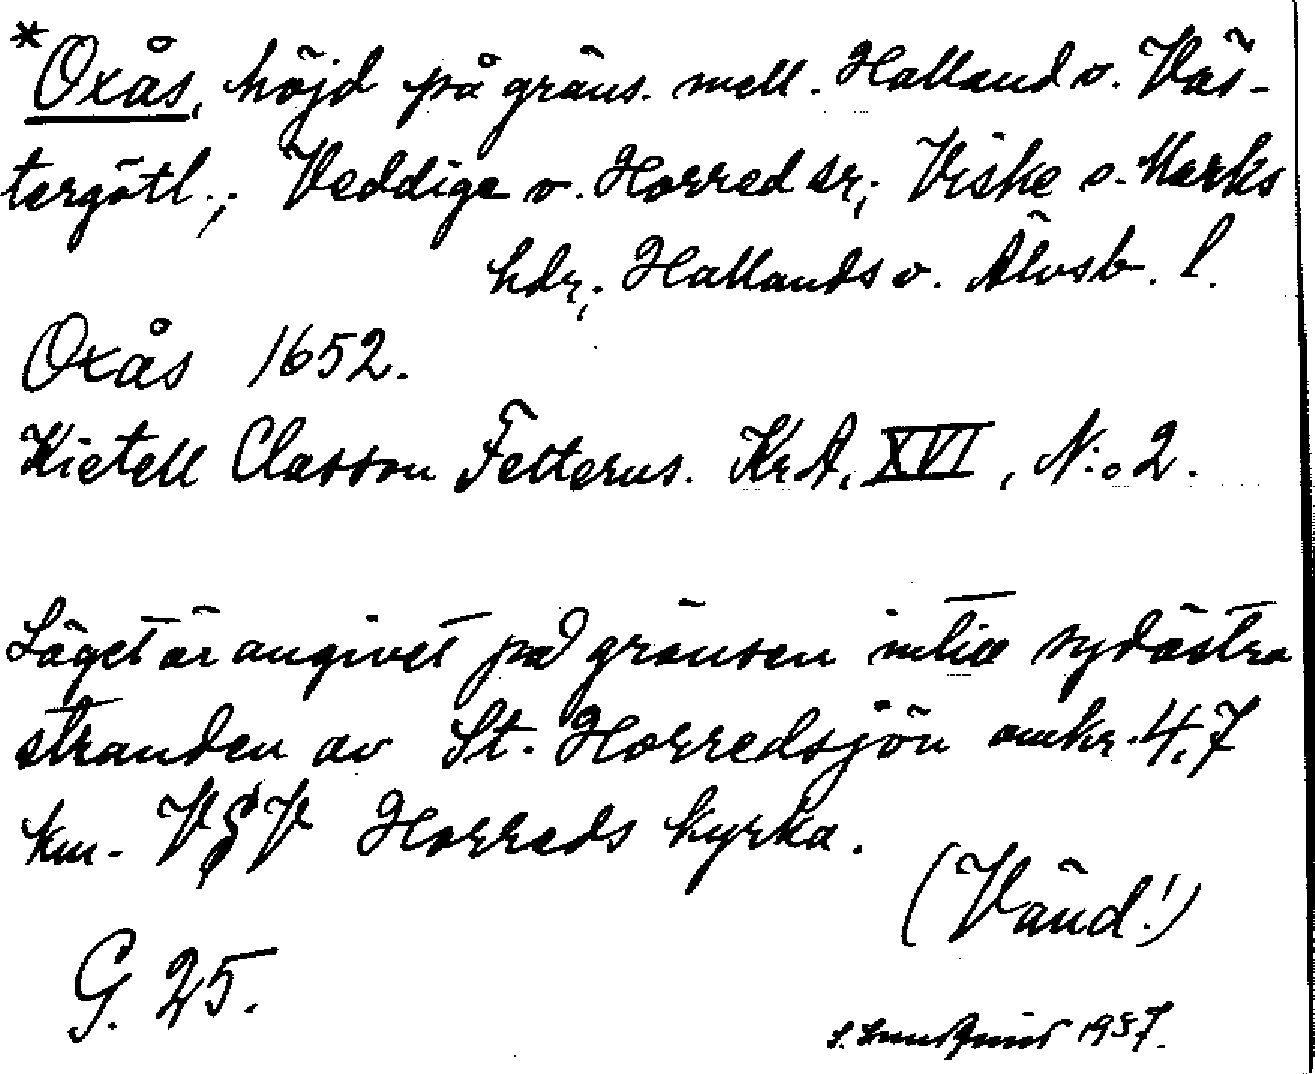 *Oxås, höjd på gräns. mell. Halland o. Väs-
tergötl.; Veddige o. Horred sr; Viske o. Marks
hdr; Hallands o. Älvsb. l.
Oxås 1652.
Kietell Classon Felterus. KrA, XVI, N:o 2.
Läget är angivet på gränsen intill sydöstra
stranden av St. Horredsjön omkr. 4,7
km. VSV Horreds kyrka.
(Vänd!)
G. 25.
1937.